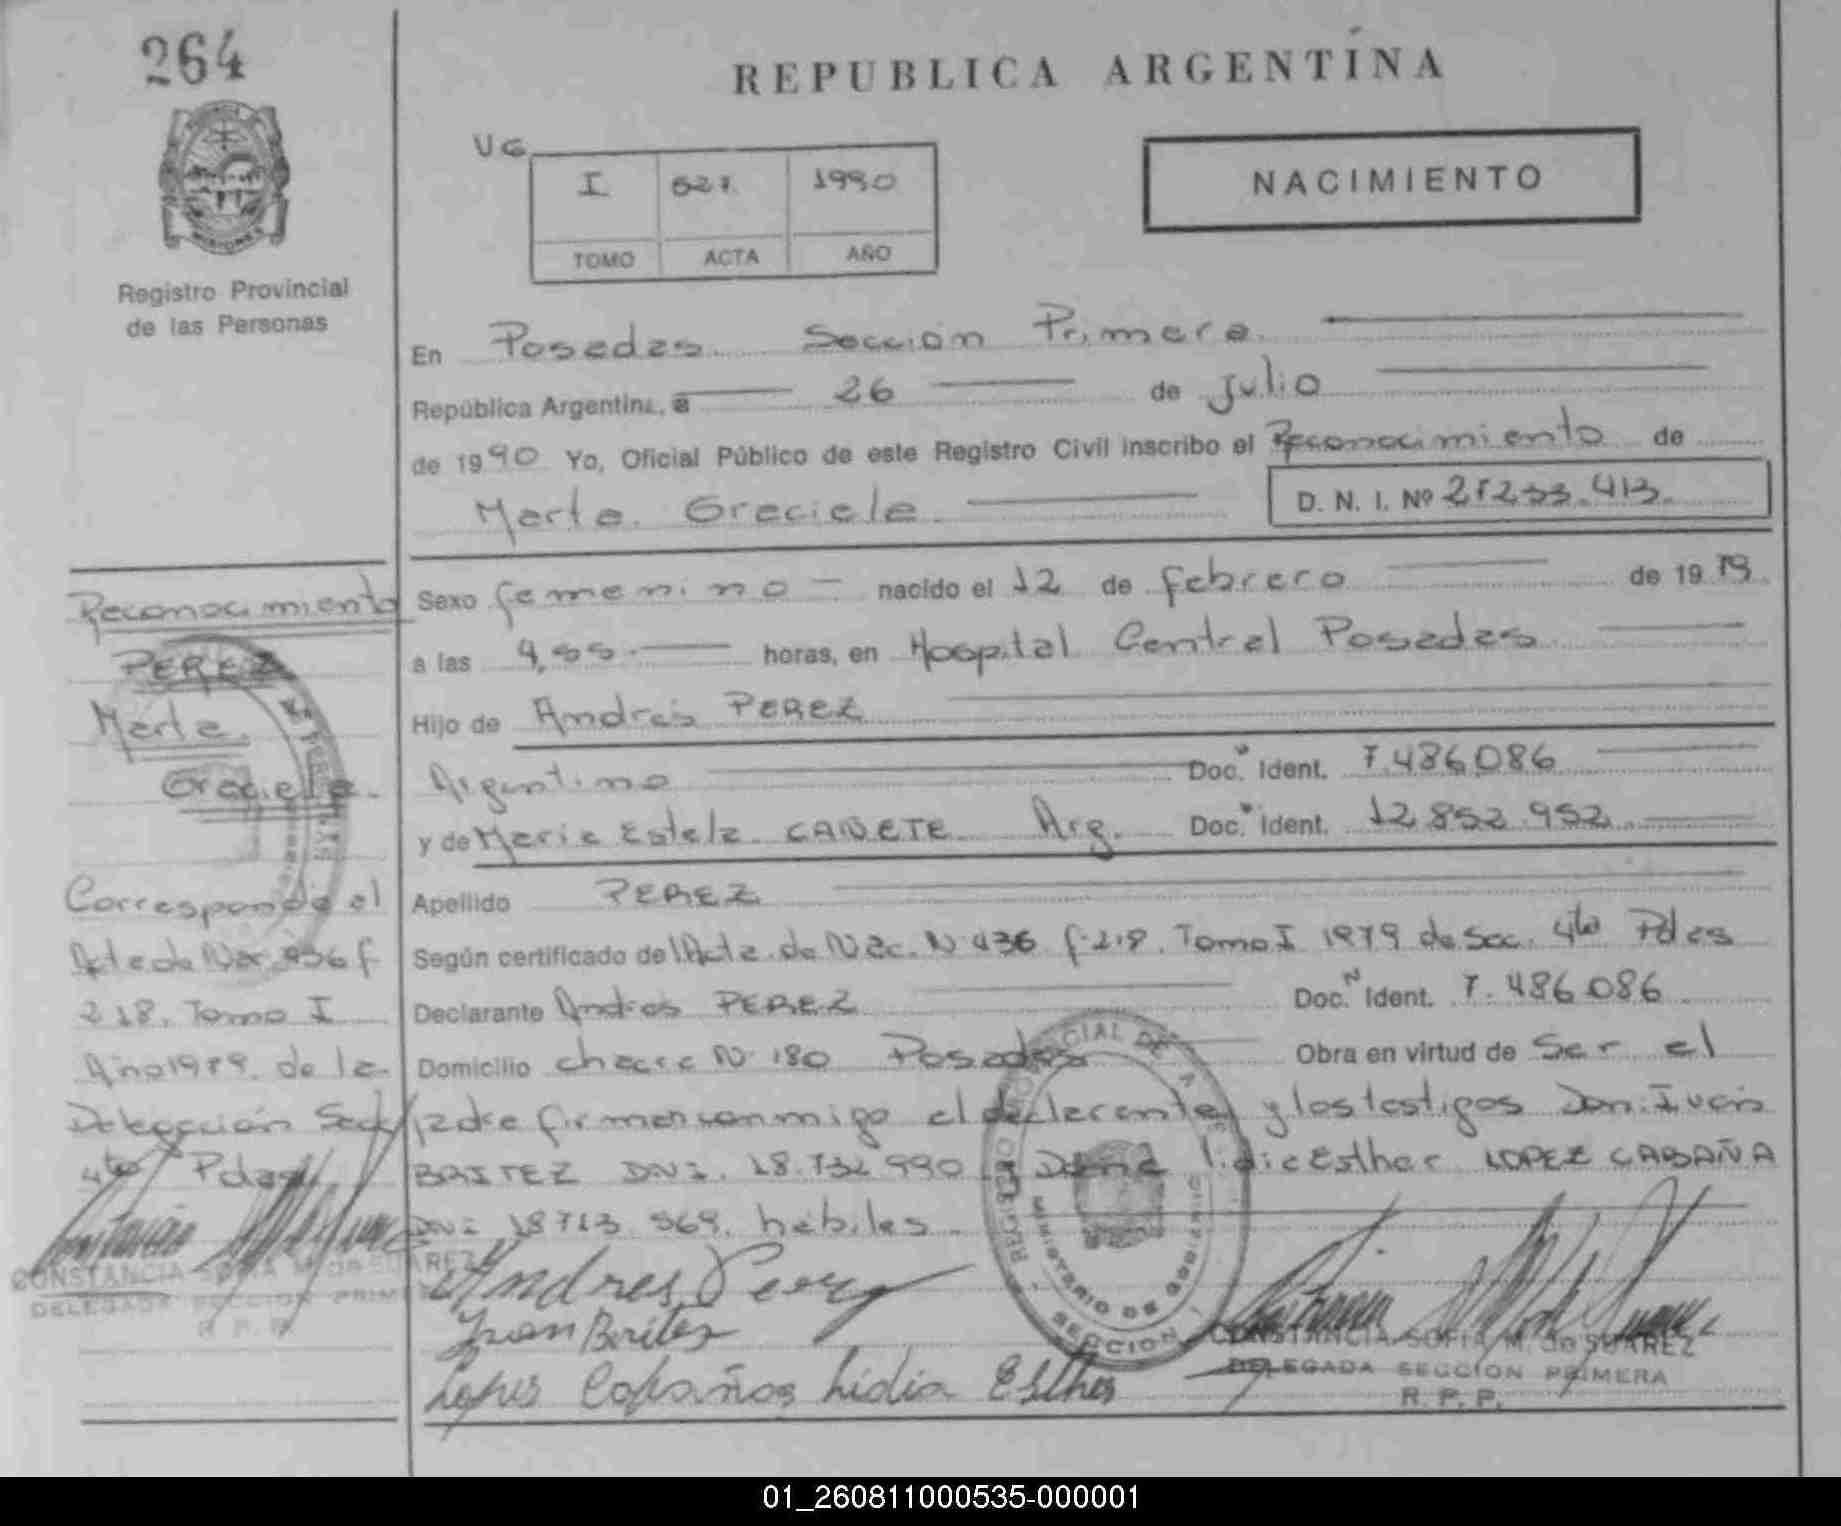 264
REPUBLICA ARGENTINA
MISIONES
Registro Provincial
de las Personas
VG
I 527. 1990
TOMO ACTA AÑO
NACIMIENTO
En Posadas Sección Primera
República Argentina, a 26 de Julio
de 1990 Yo, Oficial Público de este Registro Civil inscribo el Reconocimiento de
Marta Graciela D. N. I. Nº 27233.413.
Sexo femenino nacido el 12 de febrero de 1979
a las 4,55 horas, en Hospital Central Posadas
Hijo de Andrés PEREZ
Argentino Doc. Ident. 7.486.086
y de Maria Estela CAÑETE Arg. Doc. Ident. 12.852.952
Apellido PEREZ
Según certificado del Acta de Nac. N 436 f.218. Tomo I 1979 de Sec. 4ta Pdas
Declarante Andrés PEREZ Doc. N Ident. 7.486.086
Domicilio chacra N 180 Posadas Obra en virtud de Ser el
padre firman conmigo el declarante y los testigos Don Iván
BRITEZ DNI. 18.732.990 y Doña Lidia Esther LOPEZ CABAÑA
DNI 18713.569. hábiles.
Andres Perez
Ivan Britez
Lopes Cabañas Lidia Esther
CONSTANCIA SOFIA M. de SUAREZ
DELEGADA SECCION PRIMERA
R. P. P.
Reconocimiento
PEREZ
Marta
Graciela.
Corresponde al
Acta de Nac. 436 f
218. Tomo I
Año 1979. de la
Delegación Secc
4ta Pdas
CONSTANCIA SOFIA M. de SUAREZ
DELEGADA SECCION PRIMERA
R. P. P.
MINISTERIO DE GOBIERNO
SECCION
01_260811000535-000001